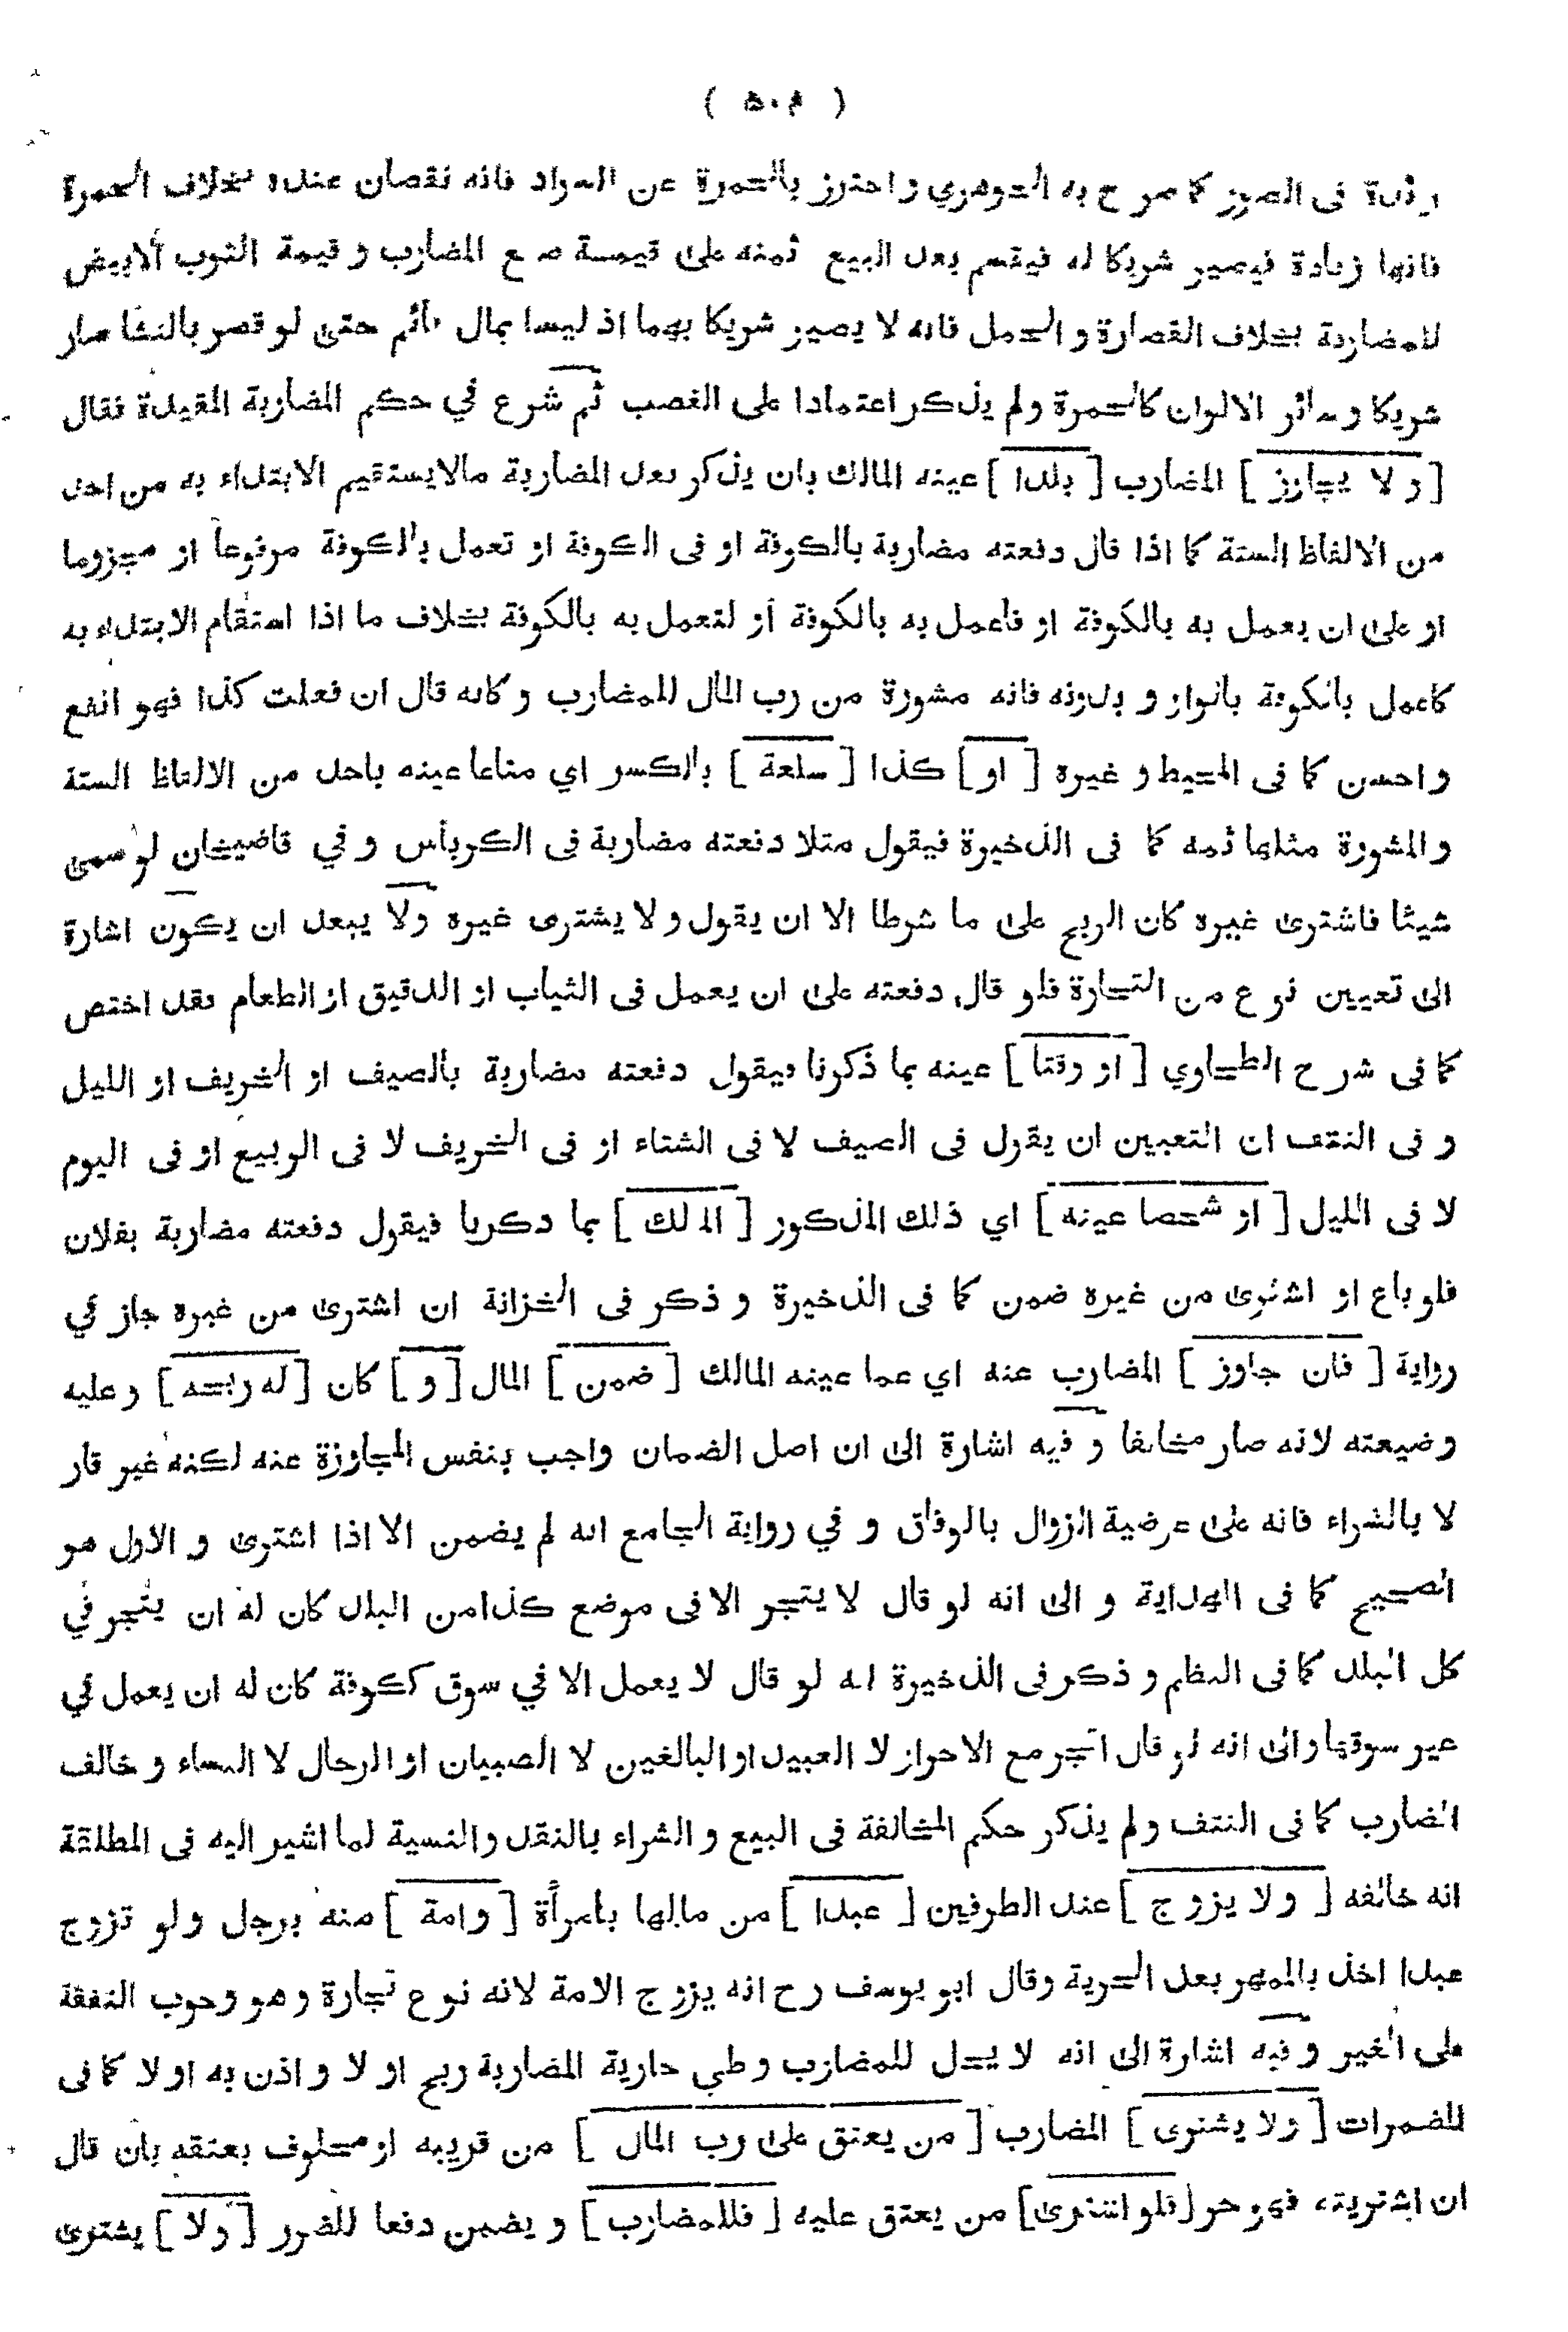 ( ٥٠٣ )
في الصور كما صرح به الجوهري و احترز بالحمرة عن السواد فانه نقصان عنده بخلاف الحمرة
فانها زيادة فيصير شريكا له فيقسم بعد البيع ثمنه على قيمة صبغ المضارب و قيمة الثوب الابيض
للمضاربة بخلاف القصارة و الحمل فانه لا يصير شريكا بهما اذ ليسا بمال قائم حتى لو قصر بالنشا صار
شريكا و سائر الالوان كالحمرة ولم يذكر اعتمادا على الغصب ثم شرع في حكم المضاربة المقيدة فقال
[ و لا يجاوز ] المضارب [ بلدا ] عينه المالك بان يذكر بعد المضاربة مالا يستقيم الابتداء به من احد
من الالفاظ الستة كما اذا قال دفعته مضاربة بالكوفة او فى الكوفة او تعمل بالكوفة مرفوعا او مجزوما
او على ان يعمل به بالكوفة او فاعمل به بالكوفة او لتعمل به بالكوفة بخلاف ما اذا استقام الابتداء به
كاعمل بالكوفة بالواو و بدونه فانه مشورة من رب المال للمضارب و كانه قال ان فعلت كذا فهو انفع
و احسن كما فى المحيط و غيره [ او ] كذا [ سلعة ] بالكسر اي متاعا عينه باحد من الالفاظ الستة
و المشورة مثلها ثمه كما فى الذخيرة فيقول مثلا دفعته مضاربة فى الكرباس و في قاضيخان لو سمى
شيئا فاشترى غيره كان الربح على ما شرطا الا ان يقول و لا يشترى غيره ولا يبعد ان يكون اشارة
الى تعيين نوع من التجارة فلو قال دفعته على ان يعمل فى الثياب او الدقيق او الطعام فقد اختص
كما فى شرح الطحاوي [ او وقتا ] عينه بما ذكرنا فيقول دفعته مضاربة بالصيف او الخريف او الليل
و فى النتف ان التعيين ان يقول فى الصيف لا فى الشتاء او فى الخريف لا فى الربيع او فى اليوم
لا فى الليل [ او شخصا عينه ] اي ذلك المذكور [ المالك ] بما ذكرنا فيقول دفعته مضاربة بفلان
فلو باع او اشترى من غيره ضمن كما فى الذخيرة و ذكر فى الخزانة ان اشترى من غيره جاز في
رواية [ فان جاوز ] المضارب عنه اي عما عينه المالك [ ضمن ] المال [ و ] كان [ له ربحه ] و عليه
وضيعته لانه صار مخالفا و فيه اشارة الى ان اصل الضمان واجب بنفس المجاوزة عنه لكنه غير قار
لا بالشراء فانه على عرضية الزوال بالوفاق و في رواية الجامع انه لم يضمن الا اذا اشترى و الاول هو
الصحيح كما فى الهداية و الى انه لو قال لا يتجر الا فى موضع كذا من البلد كان له ان يتجر في
كل البلد كما فى النظم و ذكر فى الذخيرة انه لو قال لا يعمل الا في سوق ككوفة كان له ان يعمل في
غير سوقها و الى انه لو قال اتجر مع الاحرار لا العبيد او البالغين لا الصبيان او الرجال لا النساء و خالف
المضارب كما فى النتف و لم يذكر حكم المخالفة فى البيع و الشراء بالنقد والنسية لما اشير اليه فى المطلقة
انه خالفه [ ولا يزوج ] عند الطرفين [ عبدا ] من مالها بامرأة [ و امة ] منه برجل و لو تزوج
عبدا اخذ بالمهر بعد الحرية وقال ابو يوسف رح انه يزوج الامة لانه نوع تجارة و هو وجوب النفقة
على الغير و فيه اشارة الى انه لا يحل للمضارب وطي جارية المضاربة ربح او لا و اذن به او لا كما فى
المضمرات [ ولا يشترى ] المضارب [ من يعتق على رب المال ] من قريبه او محلوف بعتقه بان قال
ان اشتريته فهو حر [ فلو اشترى ] من يعتق عليه [ فللمضارب ] و يضمن دفعا للضرر [ ولا ] يشترى